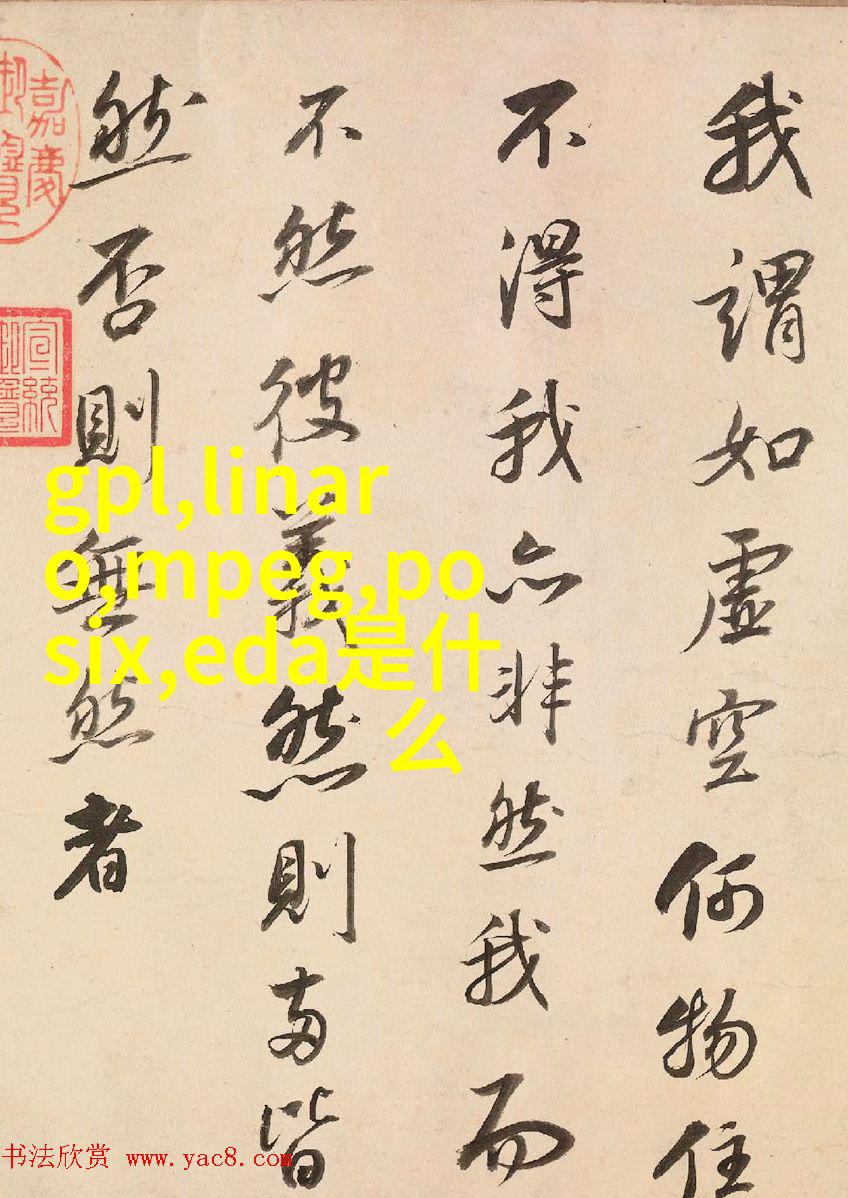 我謂如虛空何物住
不得我亦非然我而
不然彼義然則兩皆
然否則無然者
嘉慶
宣統
gpl,linar
o,mpeg,po
six,eda是什
么
书法欣赏 www.yac8.com